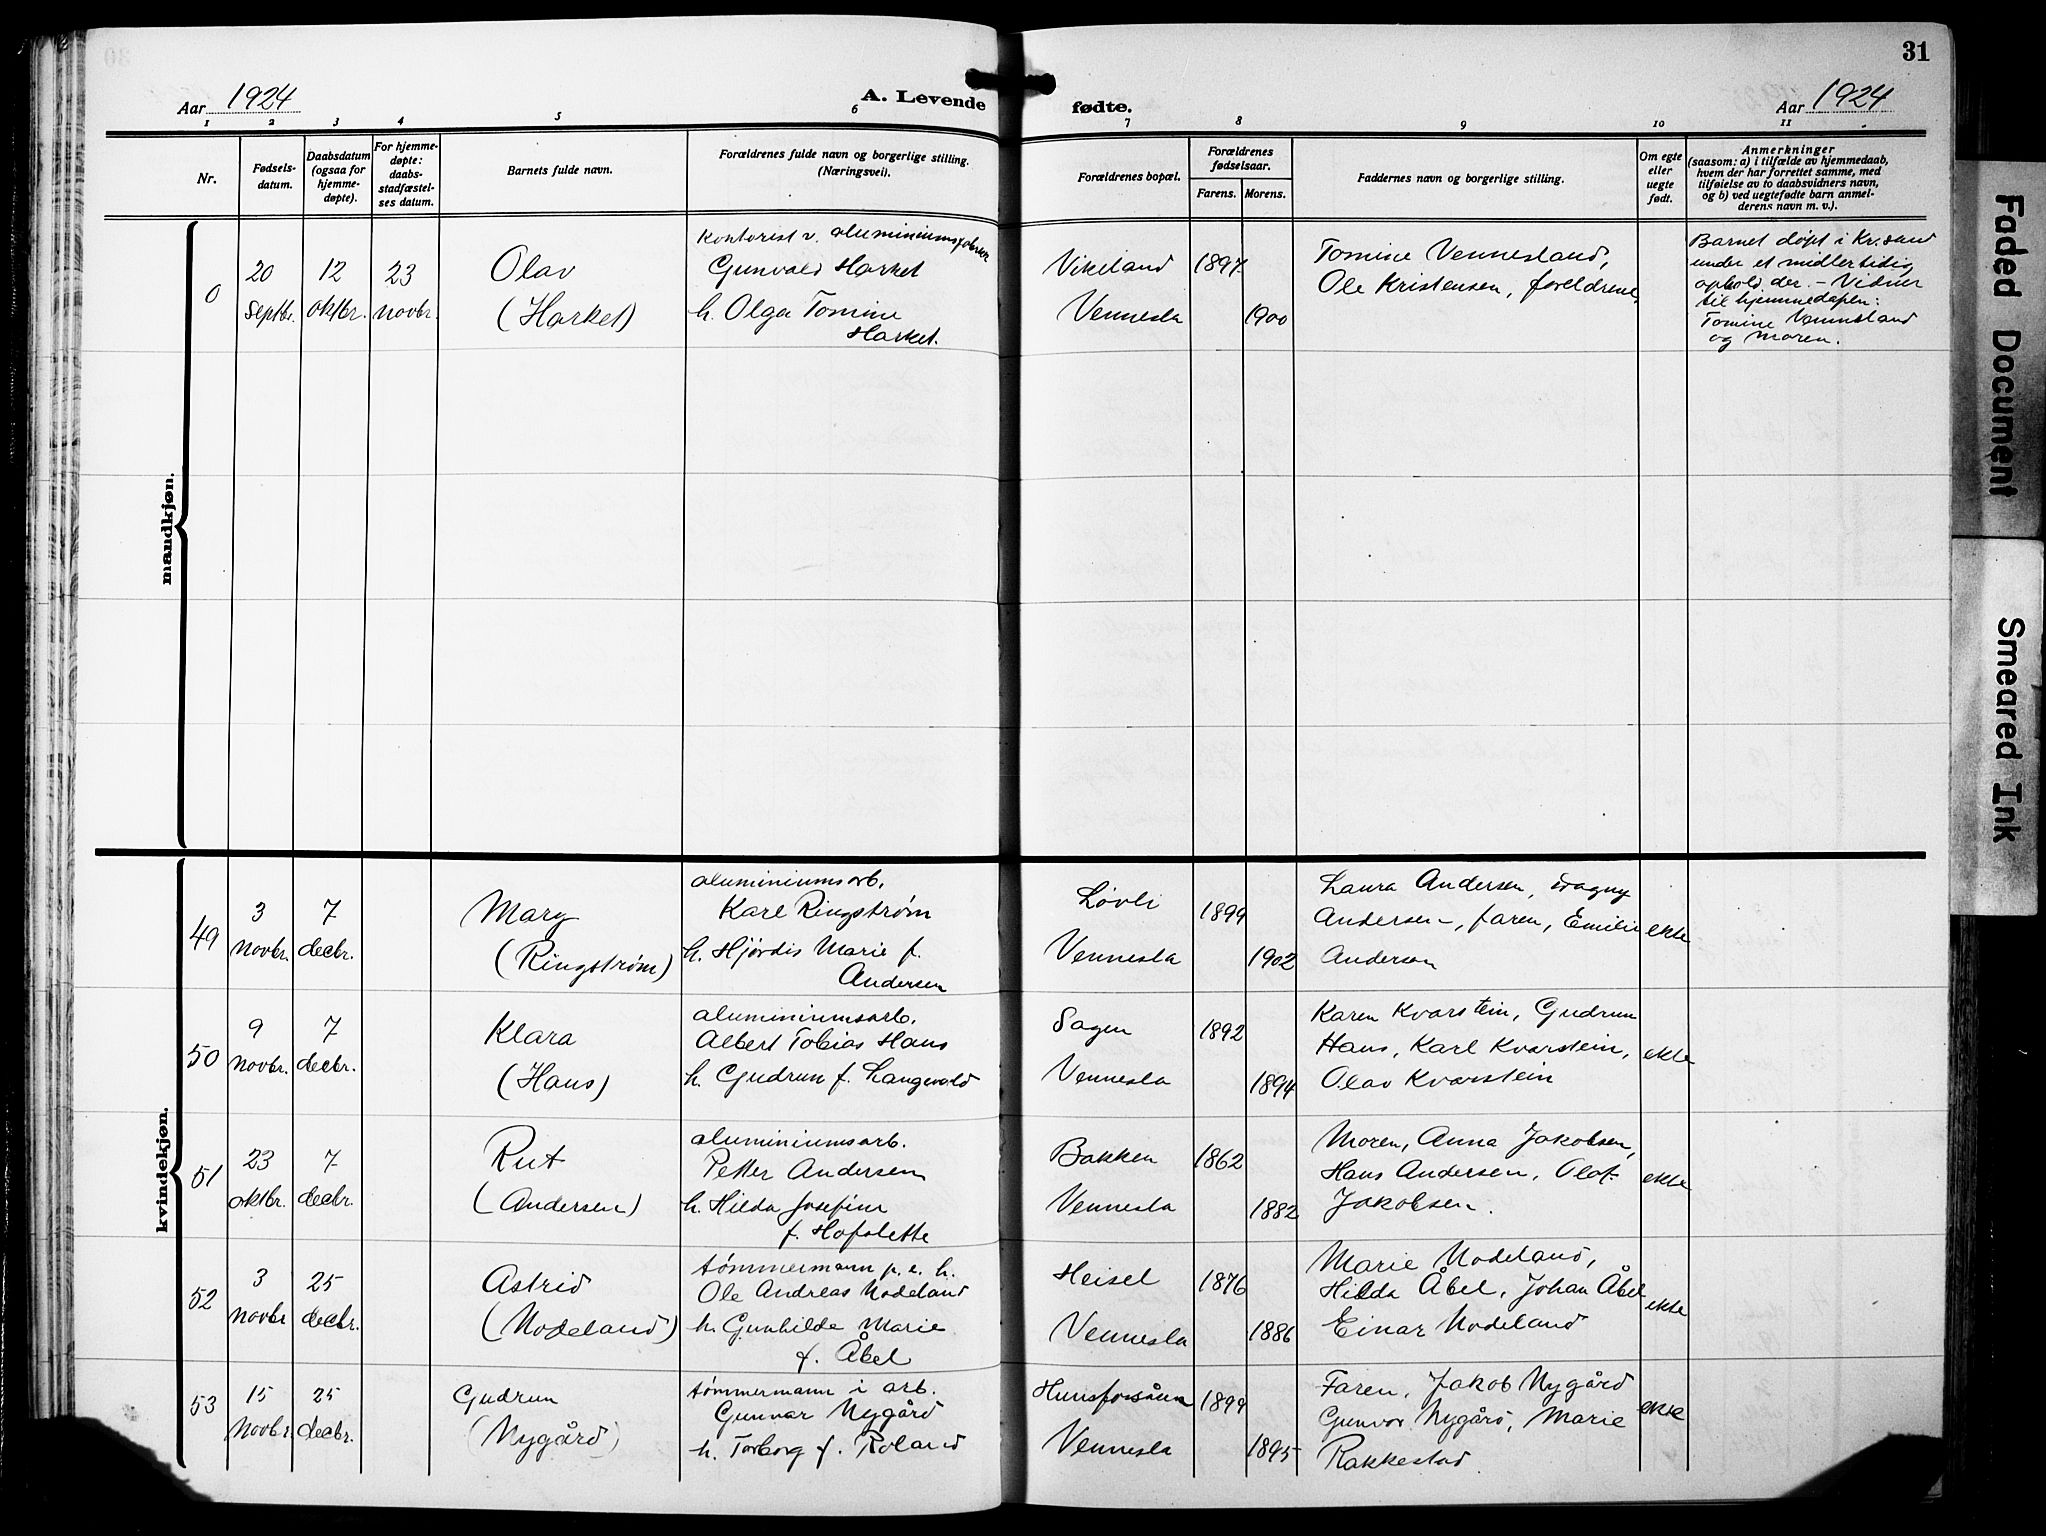 31
Aar 1924
A. Levende fødte.
Aar 1924
1 2 3 4 5 6 7 8 9 10 11
Nr.
Fødsels-
datum.
Daabsdatum
(ogsaa for
hjemme-
døpte).
For hjemme-
døpte:
daabs-
stadfæstel-
ses datum.
Barnets fulde navn.
Forældrenes fulde navn og borgerlige stilling.
(Næringsvei).
Forældrenes bopæl.
Forældrenes
fødselsaar.
Farens. Morens.
Faddernes navn og borgerlige stilling.
Om egte
eller
uegte
født.
Anmerkninger
(saasom: a) i tilfælde av hjemmedaab,
hvem der har forrettet samme, med
tilføielse av to daabsvidners navn,
og b) ved uegtefødte barn anmel-
derens navn m. v.).
mandkjøn.
0
20
Septbr.
12
oktbr.
23
novbr.
Olav
(Harket)
Kontorist v. aluminiumsfabrik
Gunvald Harket
h. Olga Tomine
Harket.
Vikeland
Vennesla
1897
1900
Tomine Vennesland,
Ole Kristensen, foreldrene,
Barnet døpt i Kr.sand
under et midlertidig
ophold der. - Vidner
til hjemmedåpen:
Tomine Vennesland
og moren.
kvindekjøn.
49
3
novbr.
7
decbr.
Mary
(Ringstrøm)
aluminiumsarb.
Karl Ringstrøm
h. Hjørdis Marie f.
Andersen
Løvli
Vennesla
1899
1902
Laura Andersen, Dagny
Andersen, faren, Emilie
Andersen
ekte
50
9
novbr.
7
decbr.
Klara
(Haus)
aluminiumsarb.
Albert Tobias Haus
h. Gudrun f. Langevold
Sagen
Vennesla
1892
1894
Karen Kvarstein, Gudrun
Haus, Karl Kvarstein,
Olav Kvarstein
ekte
51
23
oktbr.
7
decbr.
Rut
(Andersen)
aluminiumsarb.
Petter Andersen
h. Hilda Josefine
f. Hofslette
Bakken
Vennesla
1862
1882
Moren, Anna Jakobsen,
Hans Andersen, Olaf
Jakobsen.
ekte
52
3
novbr
25
decbr.
Astrid
(Nodeland)
tømmermann p. e. h.
Ole Andreas Nodeland
h. Gunhilde Marie
f. Åbel
Heisel
Vennesla
1876
1886
Marie Nodeland,
Hilda Åbel, Johan Åbel
Einar Nodeland
ekte
53
15
novbr.
25
decbr.
Gudrun
(Nygård)
tømmermann i arb.
Gunvar Nygård
h. Torborg f. Roland
Hunsfossåsen
Vennesla
1899
1895
Faren, Jakob Nygård
Gunvor Nygård, Marie
Rakkestad
ekte
Faded Document
Smeared Ink